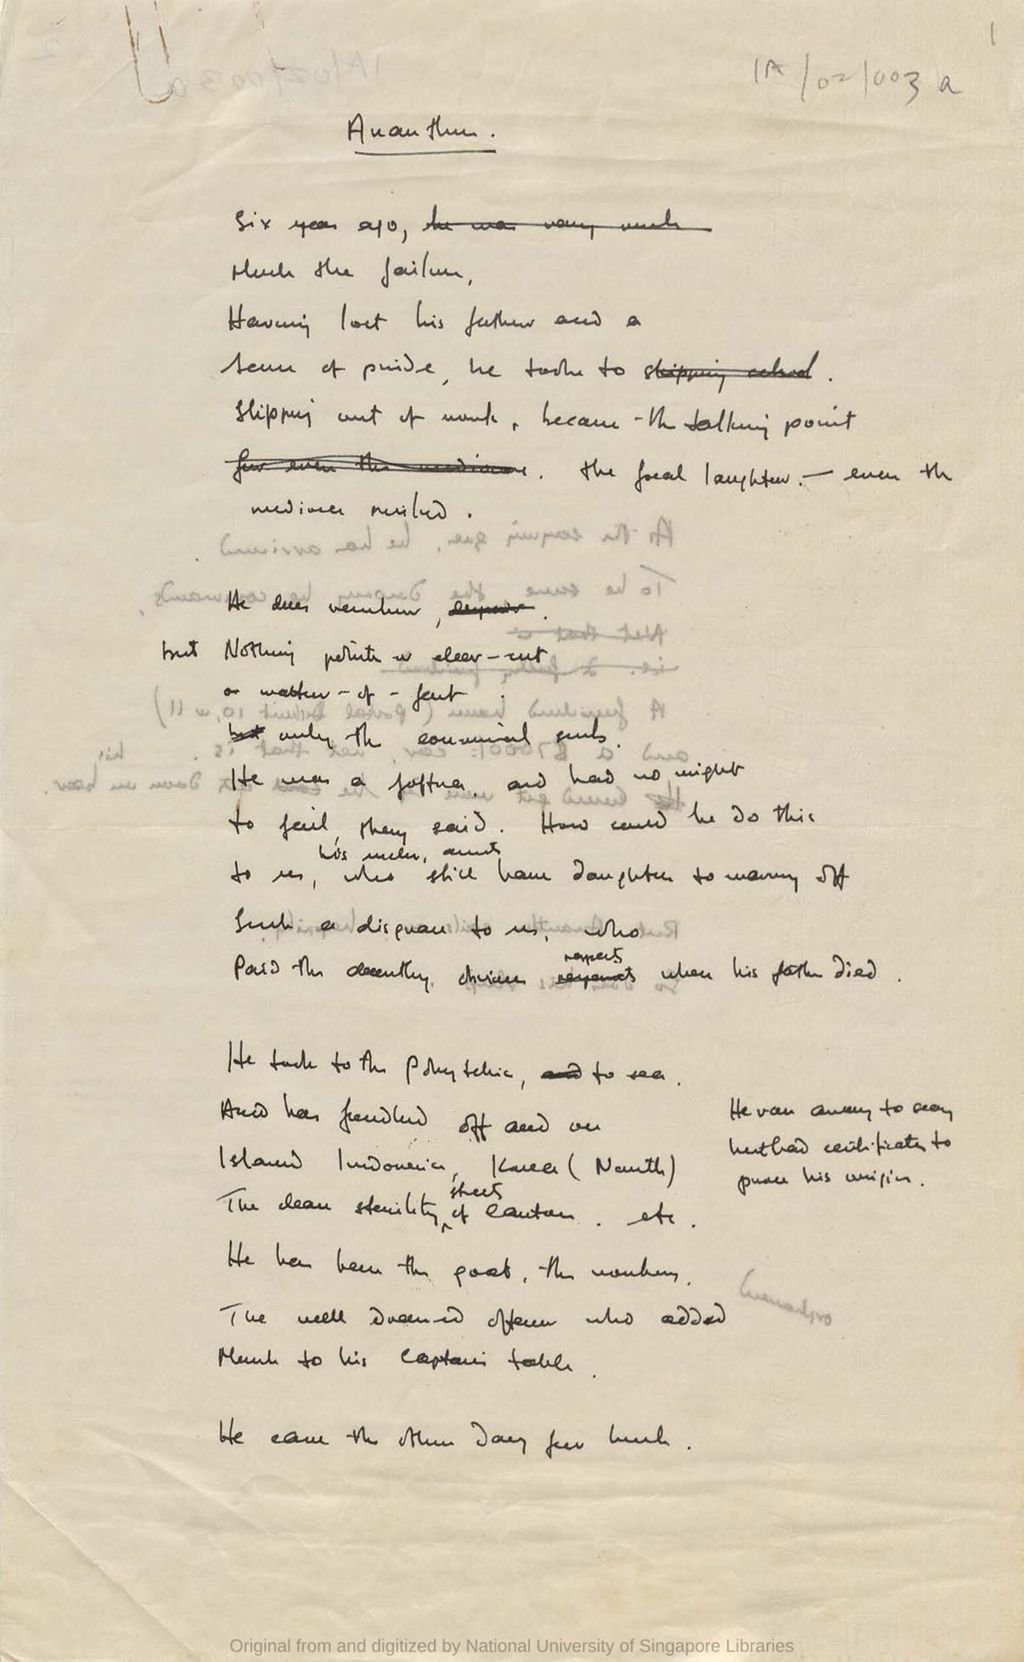 1
1A/02/003 a
Ananthan.
Six years ago, he was very much
Much the failure,
Having lost his father and a
sense of pride, he took to shipping school.
Slipping out of work, became the talking point
for even the mediocre. the focal laughter. — even the
mediocre smiled.
He does remember,
but Nothing points or clear-cut
or matter-of-fact
but only the communal
He was a Jaffna, and had no right
to fail, they said. How could he do this
his uncles, aunts
to us, who still have daughters to marry off
Such a disgrace to us, who
respects
Paid the decently, respects when his father died.
He took to the Polytechnic, and to sea.
And has off and on
Island Indonesia, Korea (North)
He ran away to sea
but had certificates to
prove his origin.
streets
The clean sterility, of Canton. etc.
He has been the poet, the
The well dressed officer who added
Much to his Captain's table.
He came the other day for lunch.
Original from and digitized by National University of Singapore Libraries